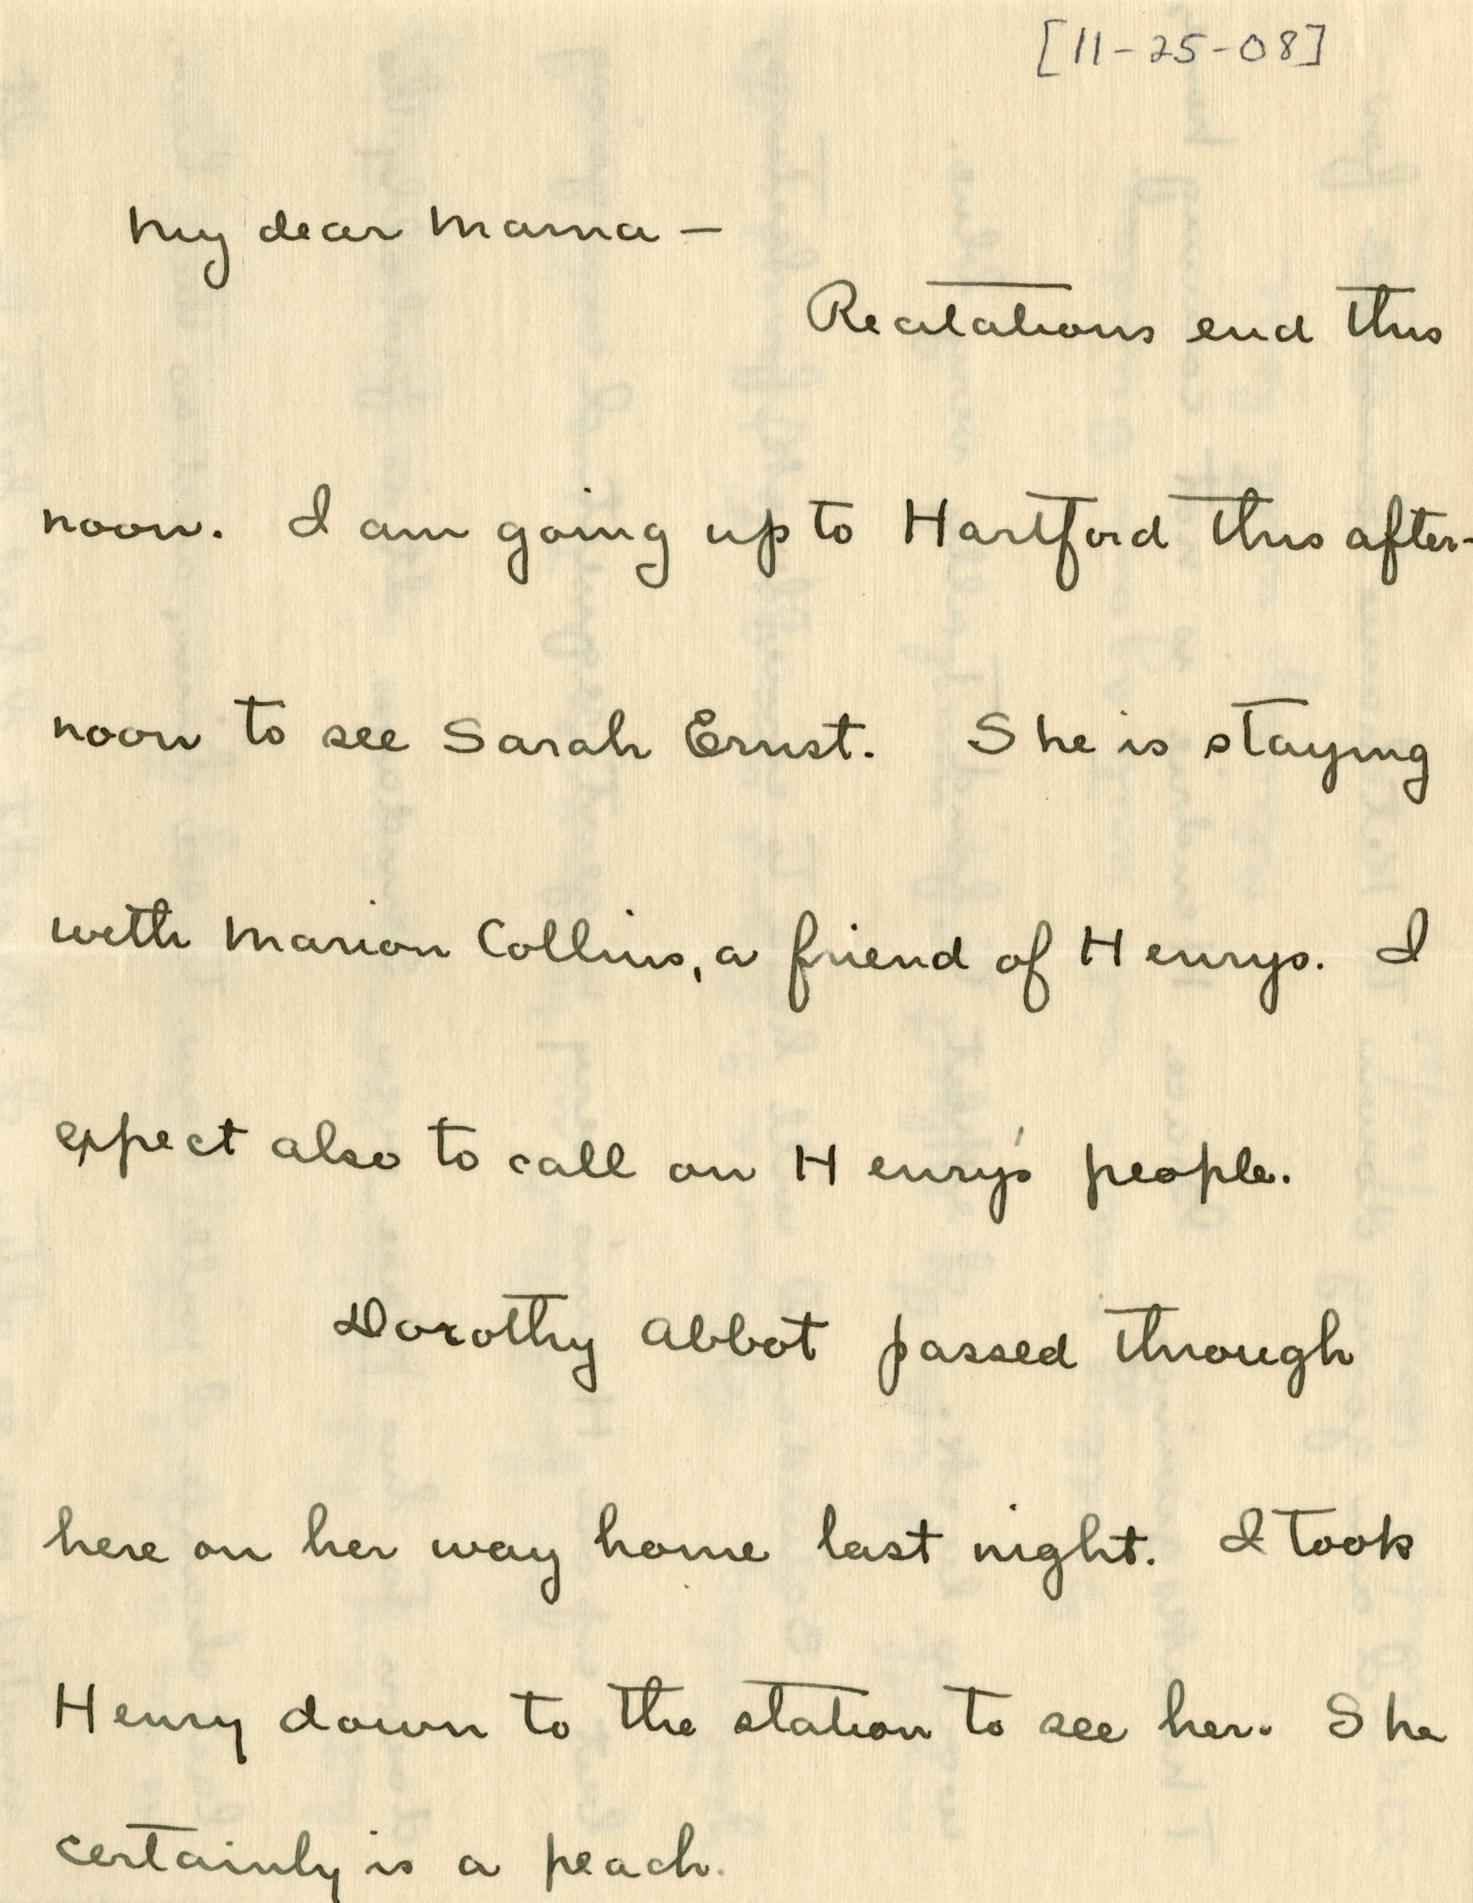 [11-25-08]
My dear Mama —
Recitations end this
noon. I am going up to Hartford this after-
noon to see Sarah Ernst. She is staying
with Marion Collins, a friend of Henrys. I
expect also to call on Henry's people.
Dorothy Abbot passed through
here on her way home last night. I took
Henry down to the station to see her. She
certainly is a peach.